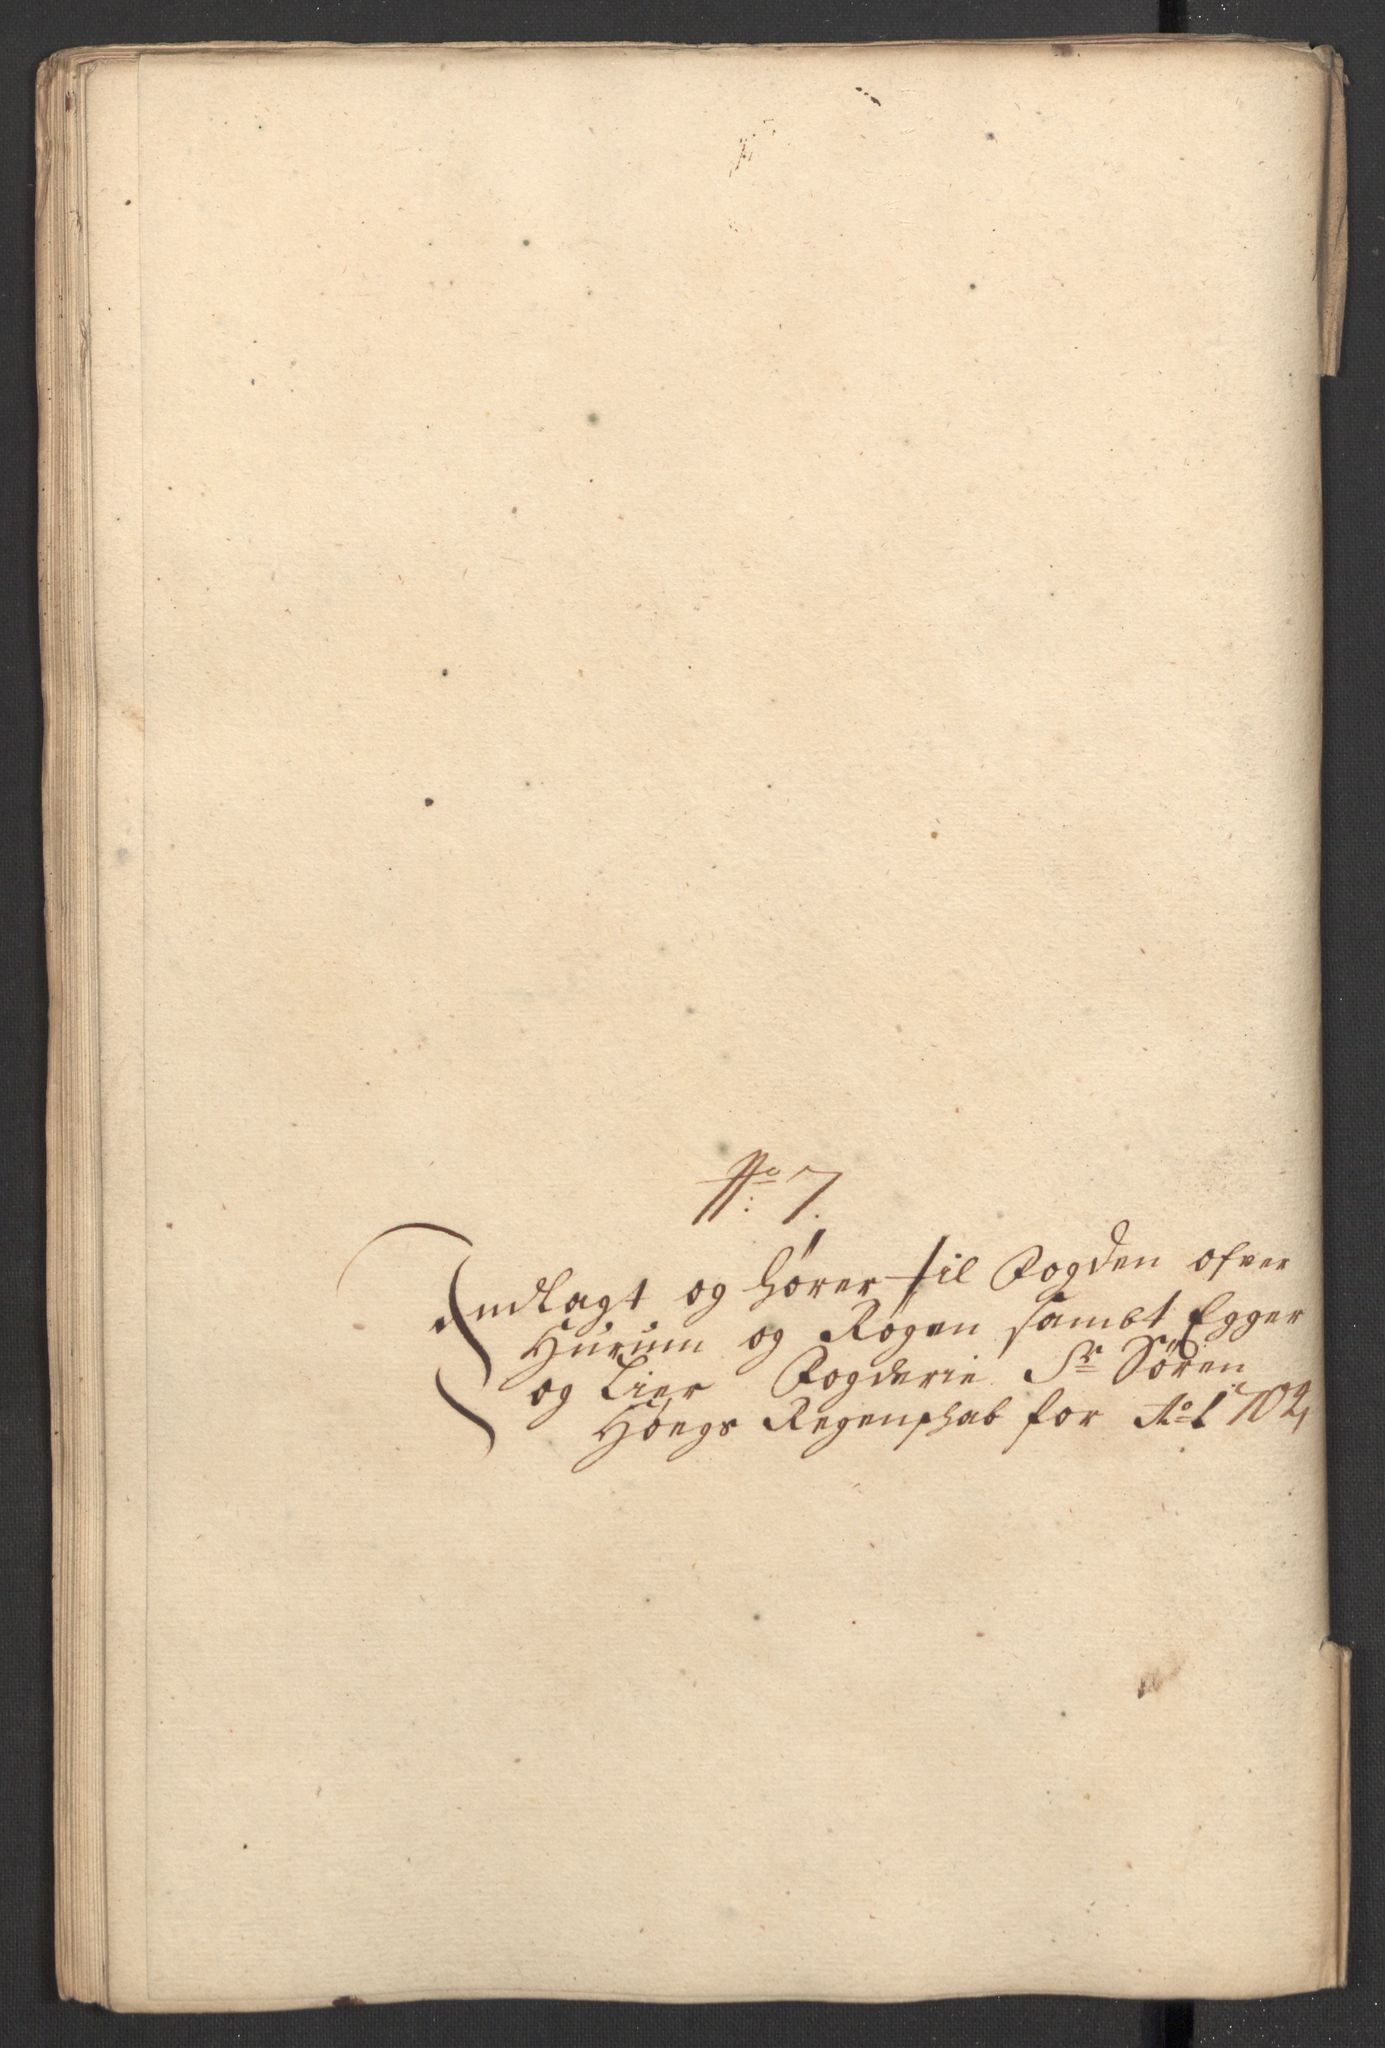 No: 7.
Indlagt og hører til Fogden ofver
Hurum og Røgen sambt Egger
og Lier Fogderie Sr Søren
Høegs Regenskab for Ao 1702,